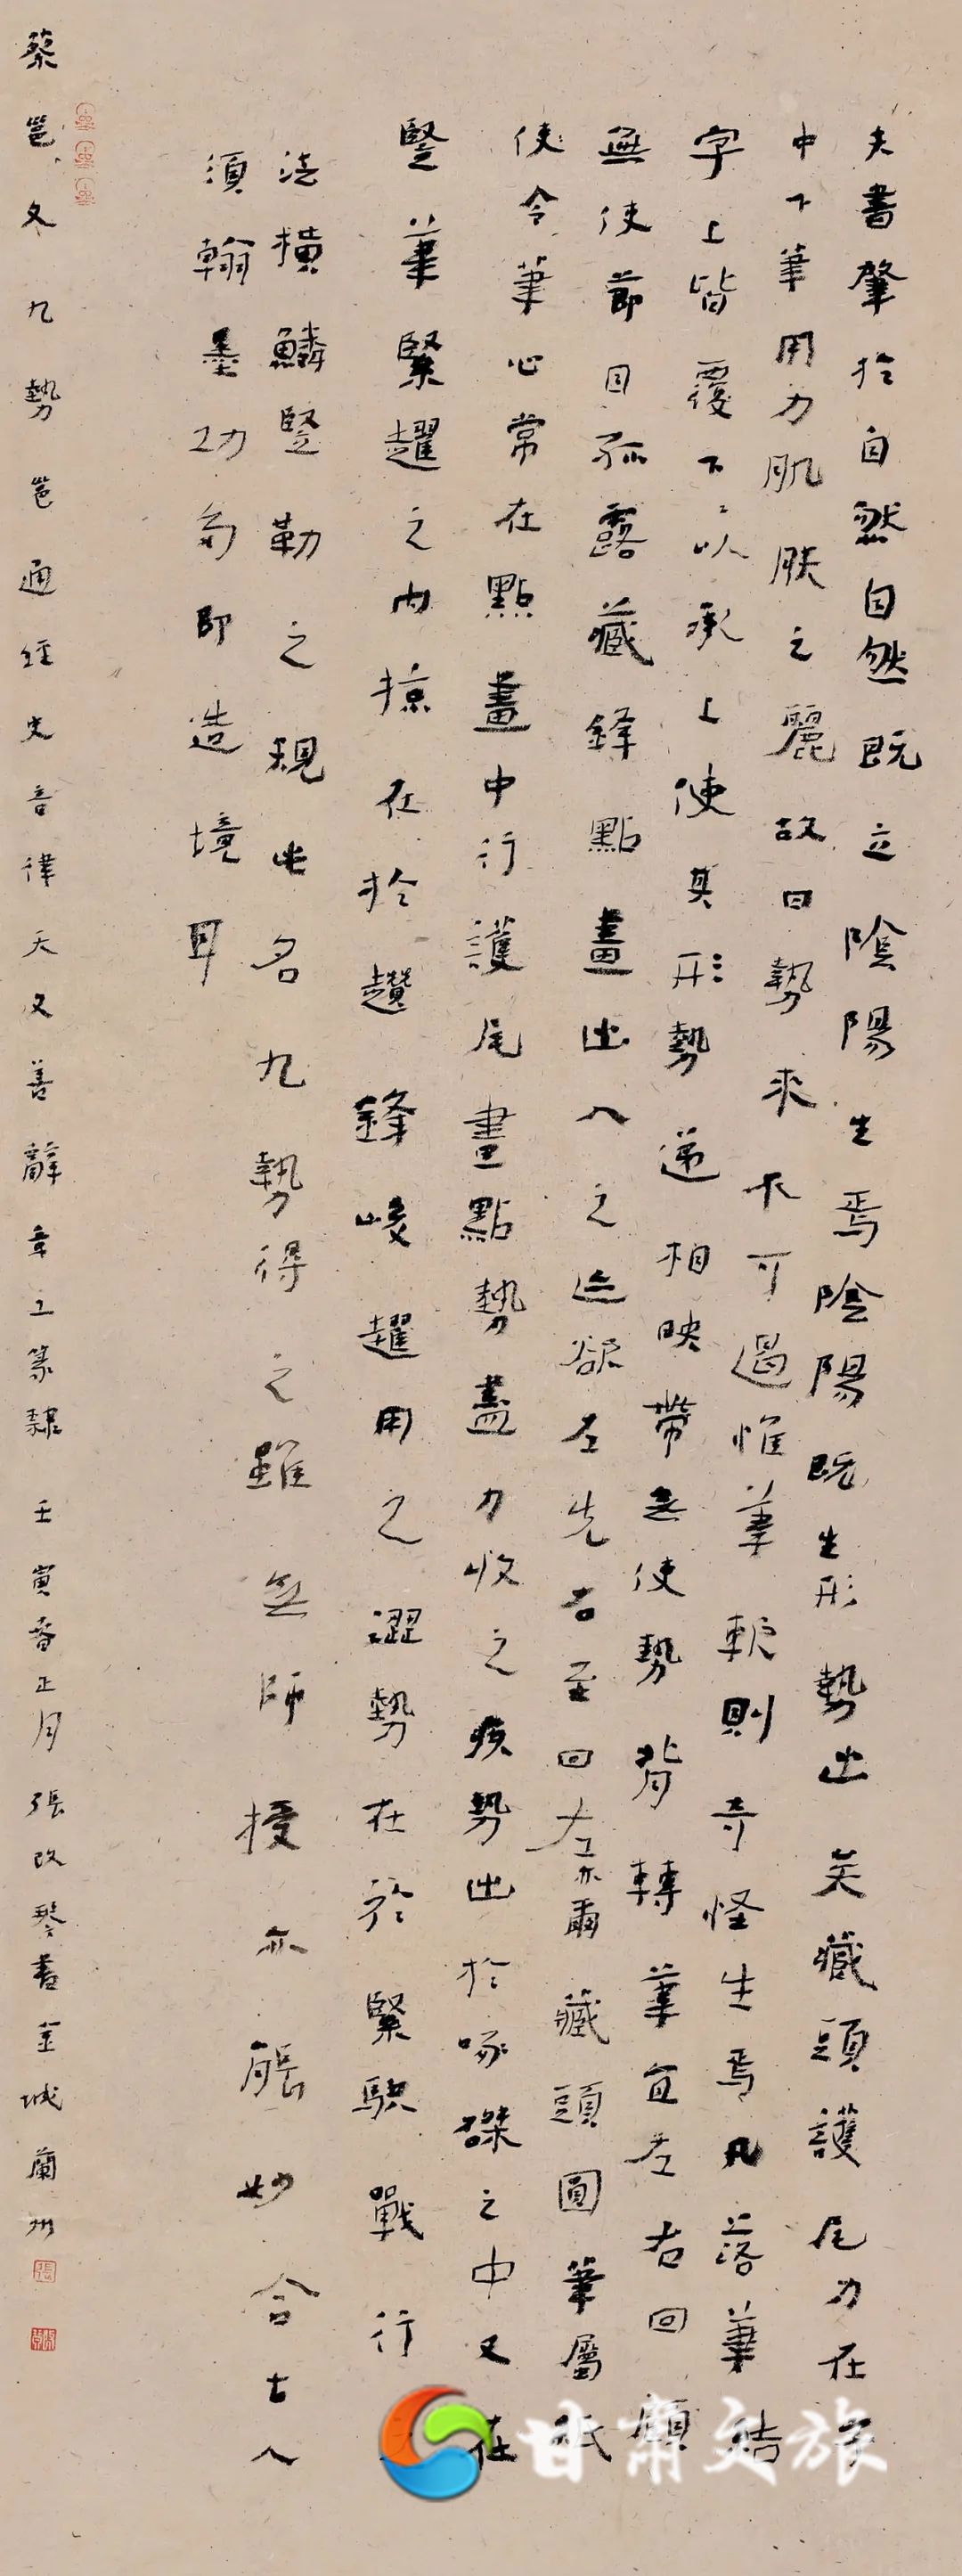 夫書肇於自然自然既立陰陽生焉陰陽既生形勢出矣藏頭護尾力在字
中下筆用力肌膚之麗故曰勢來不可遏惟筆軟則奇怪生焉凡落筆結
字上皆覆下下以承上使其形勢遞相映帶無使勢背轉筆宜左右回顧
無使節目孤露藏鋒點畫出入之迹欲左先右至回左亦爾藏頭圓筆屬紙
使令筆心常在點畫中行護尾畫點勢盡力收之疾勢出於啄磔之中又在
豎筆緊趯之內掠在於趲鋒峻趯用之澀勢在於緊駃戰行之
法橫鱗豎勒之規此名九勢得之雖無師授亦能妙合古人
須翰墨功多即造境耳
蔡邕文九勢邕通經史音律天文善辭章工篆隸壬寅春正月張改琴書金城蘭州
甘肃文旅